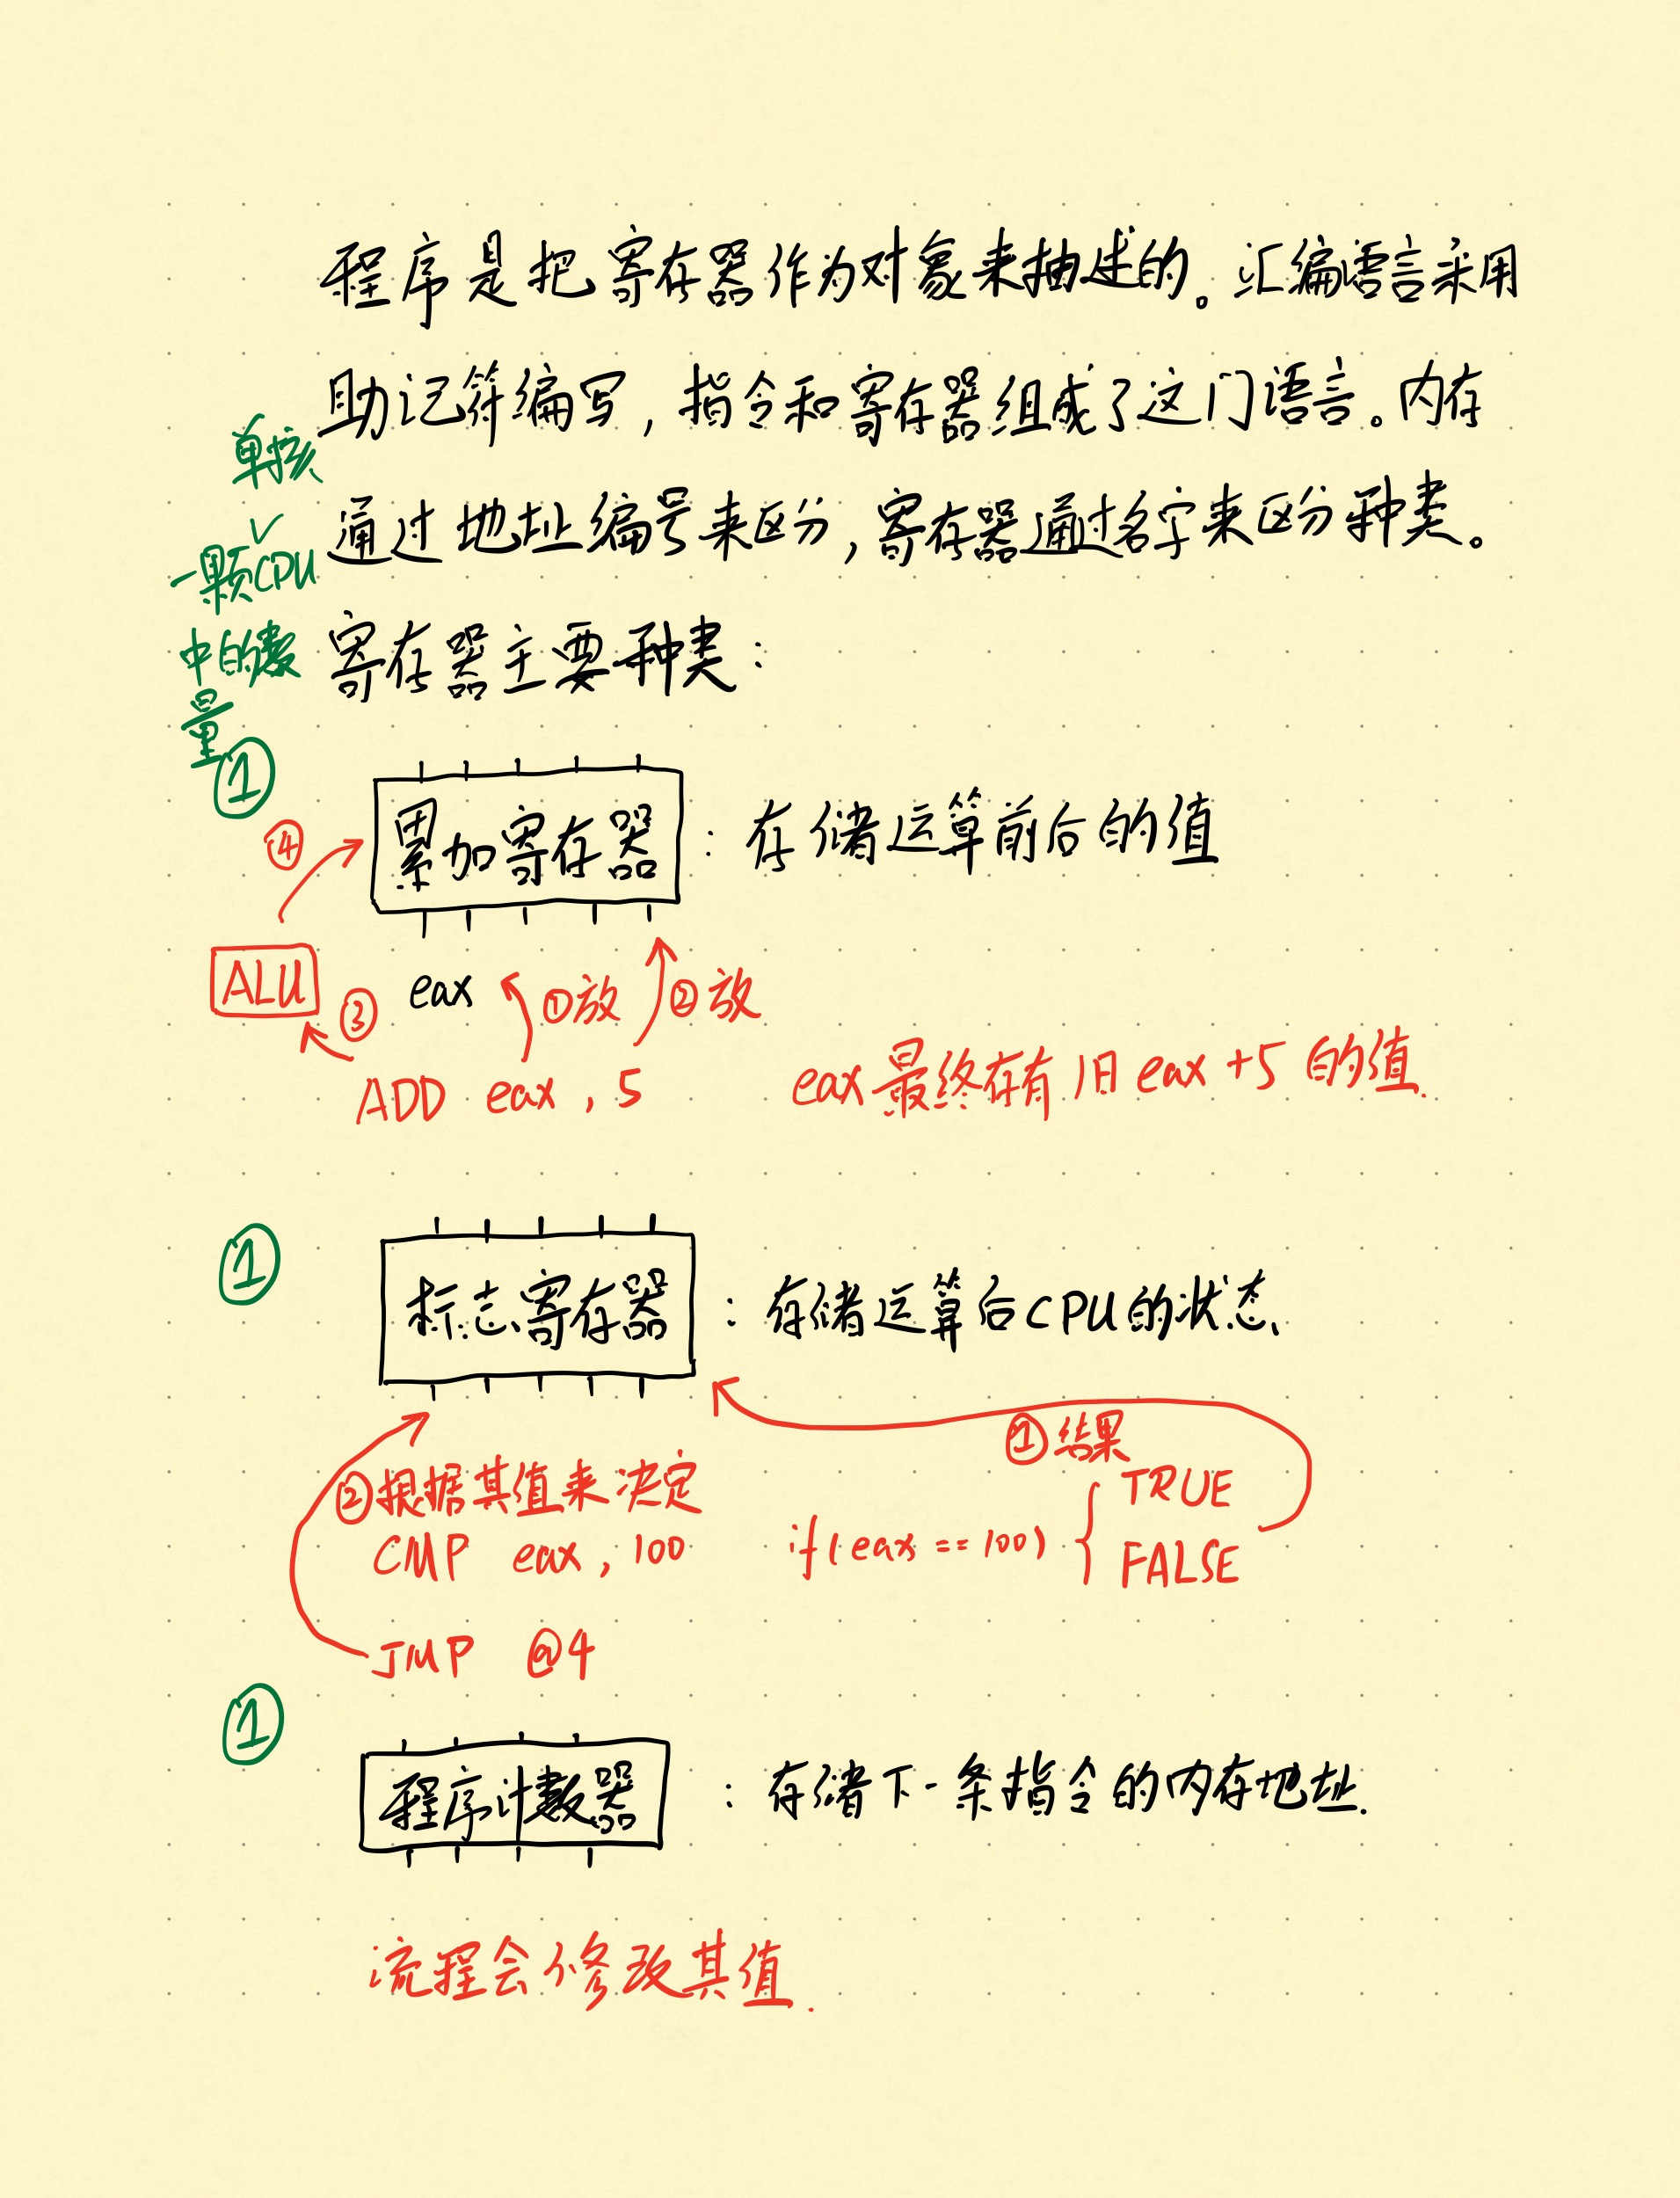 程序是把寄存器作为对象来抽述的。汇编语言采用
助记符编写，指令和寄存器组成了这门语言。内存
通过地址编号来区分，寄存器通过名字来区分种类。
寄存器主要种类：
单核
一颗CPU
中的数
量
①
累加寄存器：存储运算前后的值
④
ALU
③
eax
①放
②放
ADD eax, 5
eax最终存有旧eax+5的值.
①
标志寄存器：存储运算后CPU的状态
①结果
②根据其值来决定
TRUE
CMP eax, 100
if(eax==100)
FALSE
JMP @4
①
程序计数器：存储下一条指令的内存地址.
流程会修改其值.